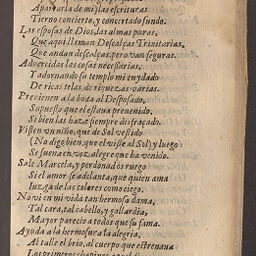 Apartarla de mi las escrituras
Tierno concierto, y concertado fundo.
Las esposas de Dios, las almas puras,
Que aqui llaman Descalças Trinitarias,
Que andan descalças, pero van seguras.
Aduertidas las cosas necessarias,
Y adornando su templo mi cuydado
De ricas telas de riquezas varias.
Preuienen a la boda al Desposado,
Supuesto que el estaua preuenido,
Si bien las haze siempre disfraçado.
Visten vn niño, que de Sol vestido
(No digo bien, que el viste al Sol) y luego
Se suena en voz alegre que ha venido.
Sale Marcela, y perdonad os ruego
Si el amor se adelanta, que quien ama
Iuzga de las colores como ciego.
No vi en mi vida tan hermosa dama,
Tal cara, tal cabello, y gallardia,
Mayor parecio a todos que su fama.
Ayuda a la hermosura la alegria,
Al talle el brio, al cuerpo que estrenaua
Los primeros chapines